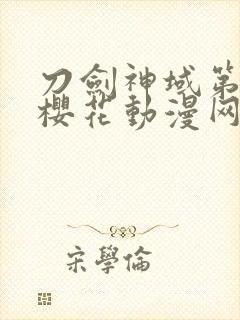 刀劍神域第
櫻花動漫网
宋學倫